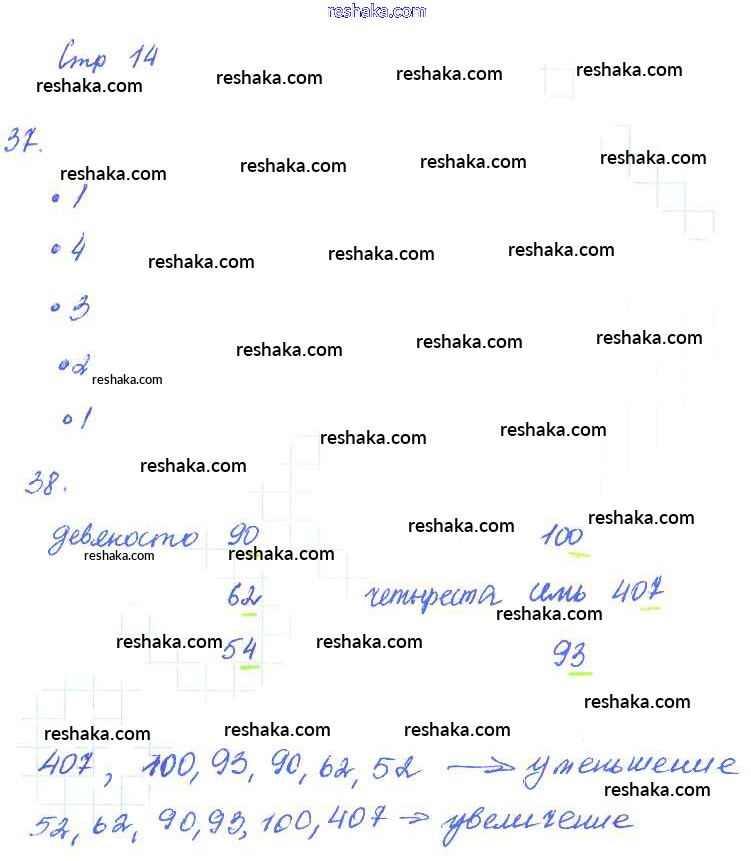 reshaka.com
Стр 14
reshaka.com reshaka.com reshaka.com reshaka.com
37.
reshaka.com reshaka.com reshaka.com reshaka.com
• 1
• 4
reshaka.com reshaka.com reshaka.com
• 3
reshaka.com reshaka.com reshaka.com
• 2
reshaka.com
• 1
reshaka.com reshaka.com reshaka.com
38.
девяносто 90 100
reshaka.com reshaka.com reshaka.com reshaka.com
62 четыреста семь 407
reshaka.com
54 93
reshaka.com reshaka.com
reshaka.com
reshaka.com reshaka.com reshaka.com
407, 100, 93, 90, 62, 52 → уменьшение
reshaka.com
52, 62, 90, 93, 100, 407 → увеличение